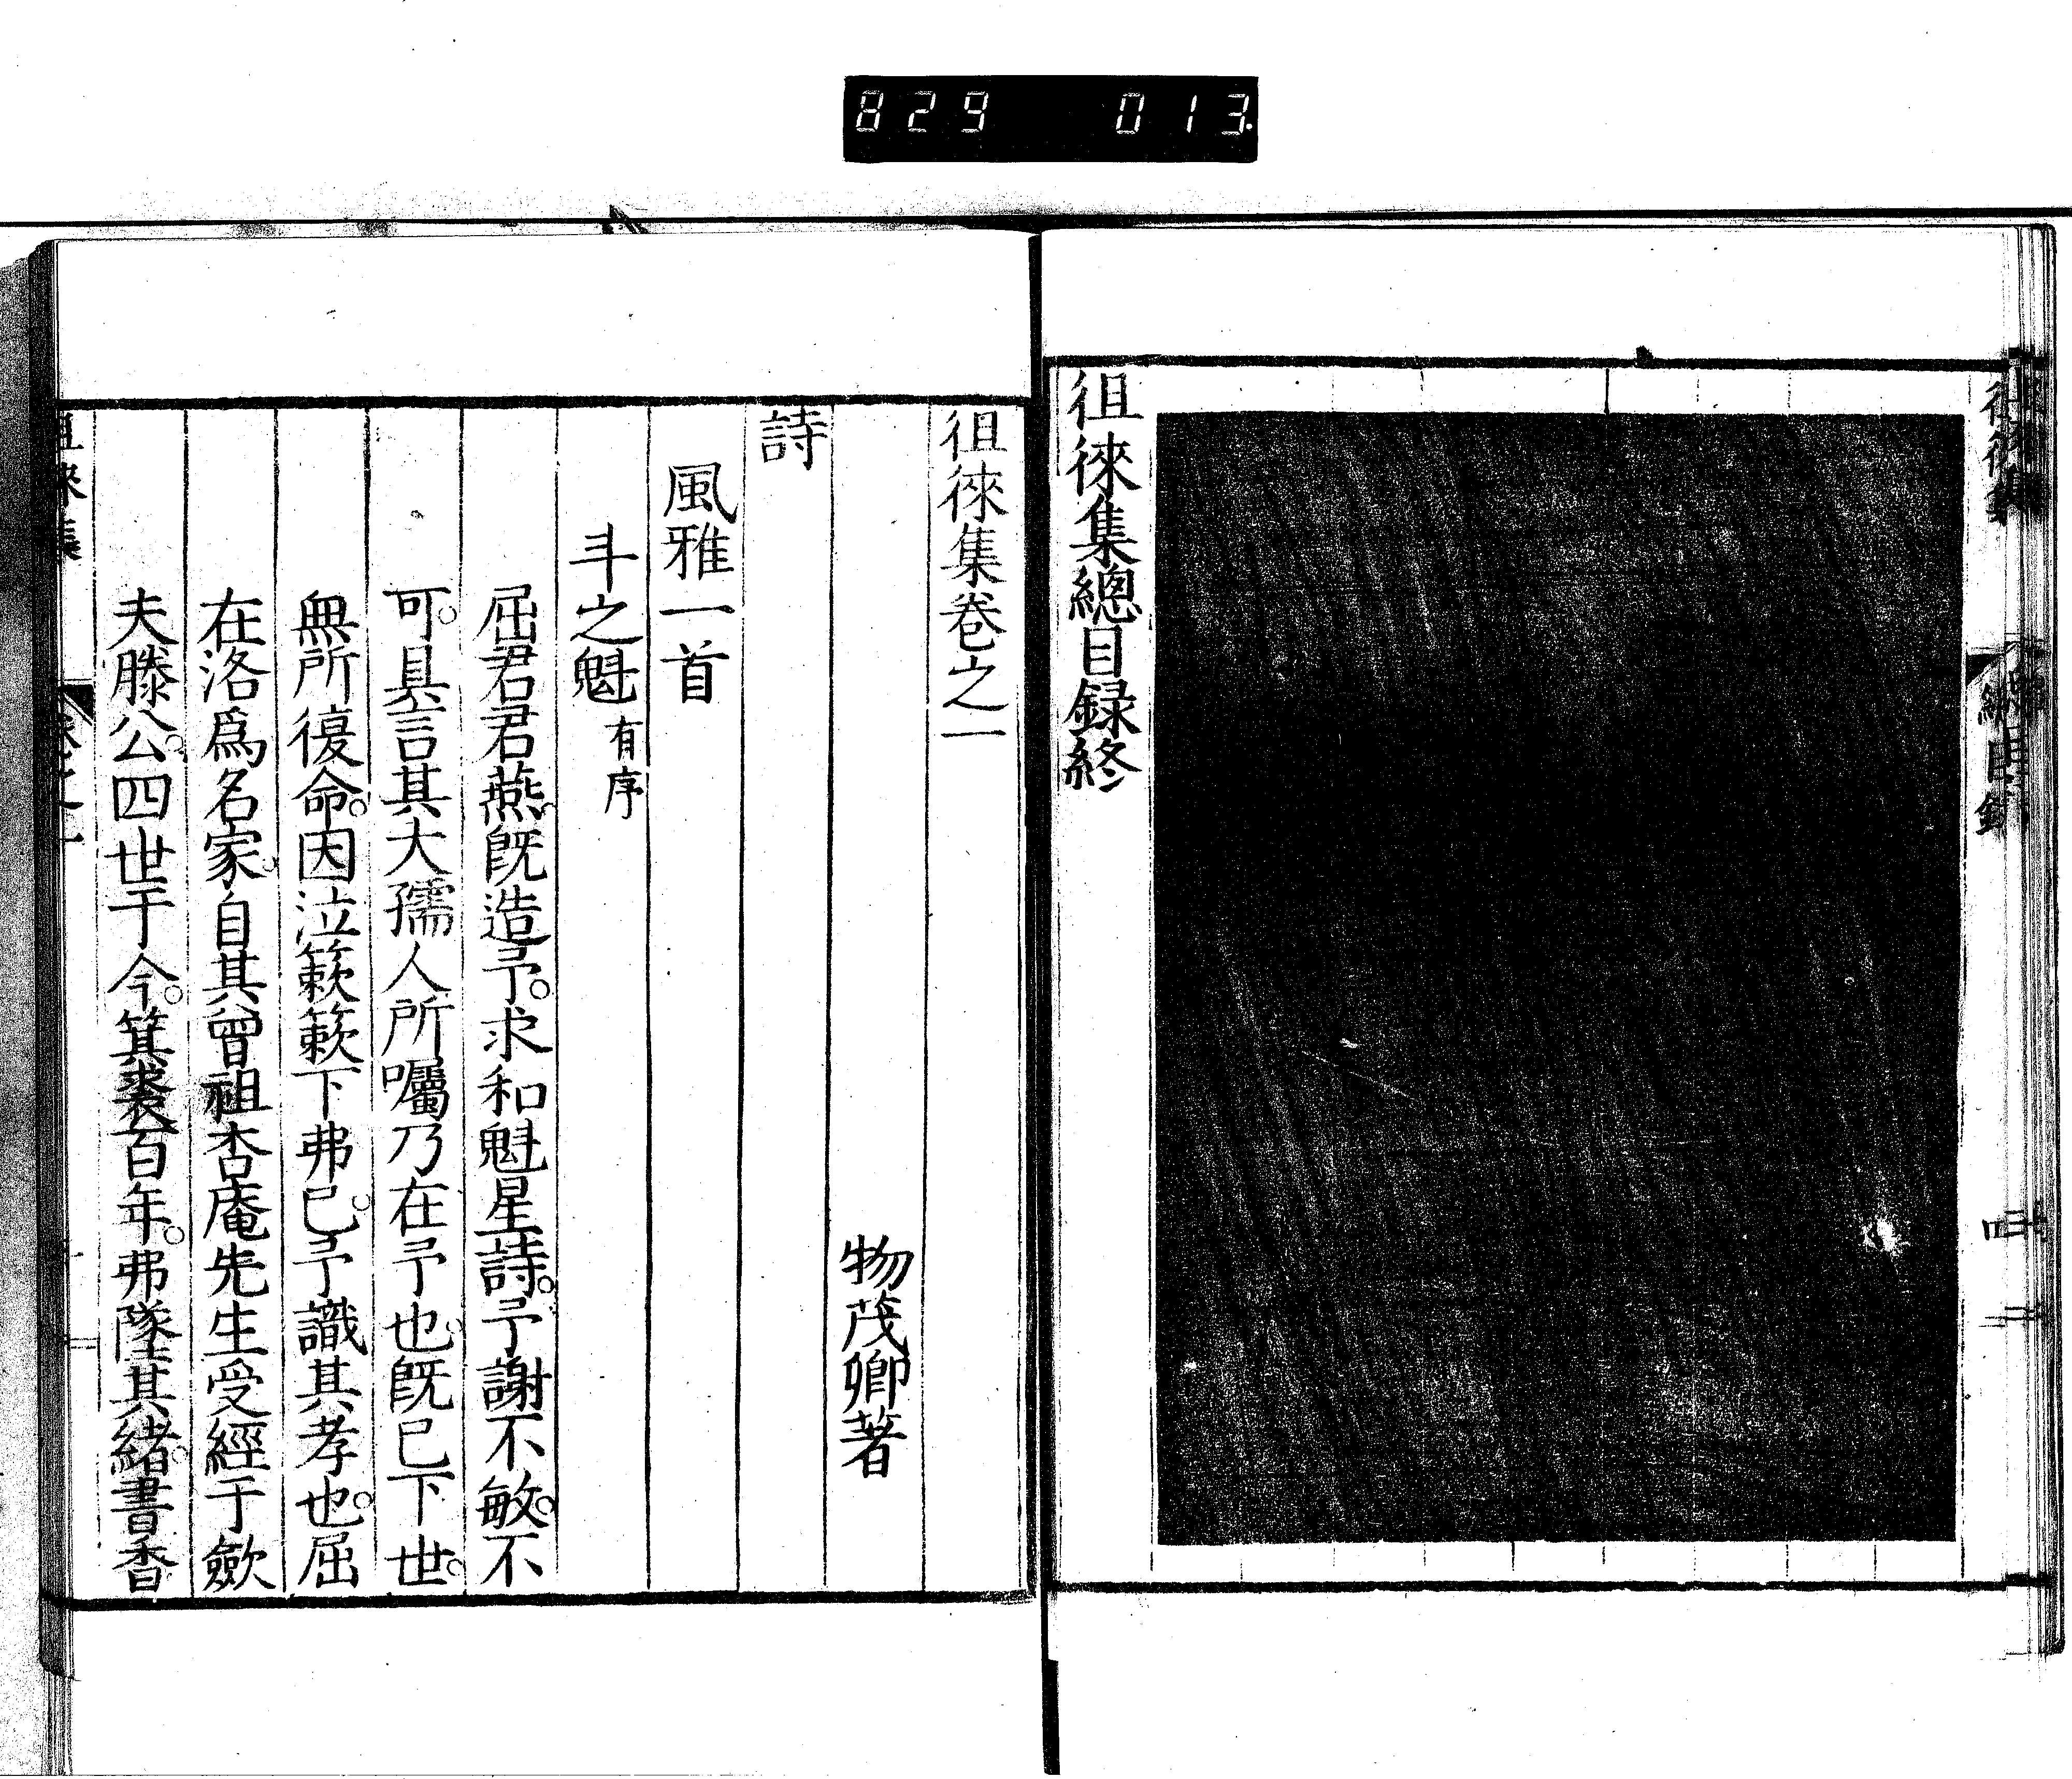 829 013.
徂徠集總目録終
徂徠集卷之一
物茂卿著
詩
風雅一首
斗之魁有序
屈君君燕。既造予。求和魁星詩。予謝不敏。不
可。具言其大孺人所囑乃在予也。既已下世。
無所復命。因泣簌簌下弗已。予識其孝也。屈
在洛爲名家。自其曾祖杏庵先生受經于歛
夫滕公。四世于今。箕裘百年。弗墜其緒。書香